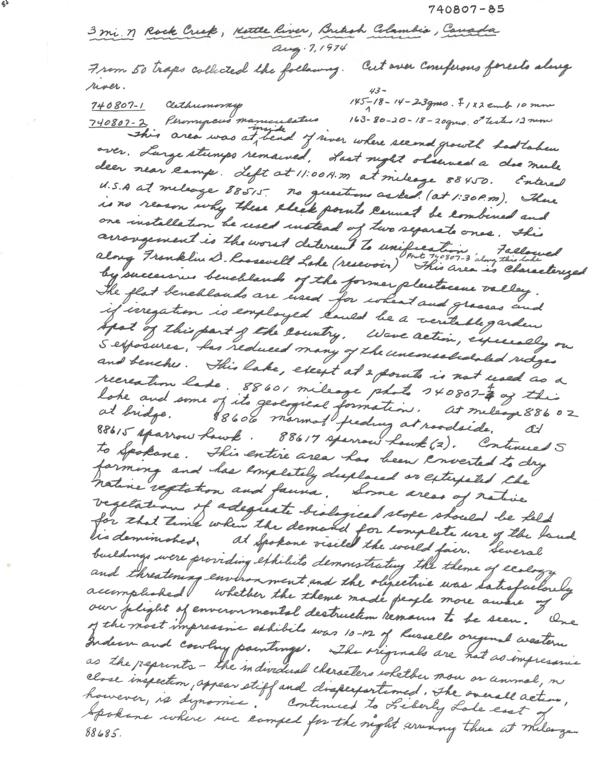 740807-85
3 mi. N Rock Creek, Kettle River, British Columbia, Canada
Aug. 7, 1974
From 50 traps collected the following. Cut over coniferous forests along
river.
740807-1 Clethrionomys 145-43-18-14-23gms. ♀ 1x2 emb 10 mm
740807-2 Peromyscus maniculatus 163-80-20-18-20gms. ♂ testis 12 mm
This area was at inside bend of river where second growth had taken
over. Large stumps remained. Last night observed a doe mule
deer near camp. Left at 11:00 A.M at mileage 88450. Entered
U.S.A at mileage 88515. no questions asked. (at 1:30 P.M). There
is no reason why these check points cannot be combined and
one installation be used instead of two separate ones. This
arrangement is the worst deterent to unification. Followed
along Franklin D. Roosevelt Lake (resevoir) Photo 740807-3 along this lake This area is characterized
by successive benchlands of the former pleistocene valley.
The flat benchlands are used for wheat and grasses and
if irregation is employed could be a veritable garden
spot of this part of the country. Wave action, especially on
S exposures, has reduced many of the unconsolodated ridges
and benches. This lake, except at 2 points is not used as a
recreation lake. 88601 mileage photo 740807-4 of this
lake and some of its geological formation. At mileage 88602
at bridge. 88606 marmot feeding at roadside. At
88615 sparrow hawk. 88617 sparrow hawk (2). Continued S
to Spokane. This entire area has been converted to dry
farming and has completely displaced or extirpated the
native vegtation and fauna. Some areas of native
vegetation of adequate biological scope should be held
for that time when the demand for complete use of the land
is deminished. At Spokane visited the world fair. Several
buildings were providing exhibits demonstrating the theme of ecology
and threatening environment and the objective was satisfactorely
accomplished. Whether the theme made people more aware of
our plight of environmental destruction remains to be seen. One
of the most impressive exhibits was 10-12 of Russells original western
Indian and Cowboy paintings. The originals are not as impressive
as the reprints - the individual characters whether man or animal, on
close inspection, appear stiff and disproportioned. The overall action,
however, is dynamic. Continued to Liberty Lake east of
Spokane where we camped for the night arriving there at mileage
88685.